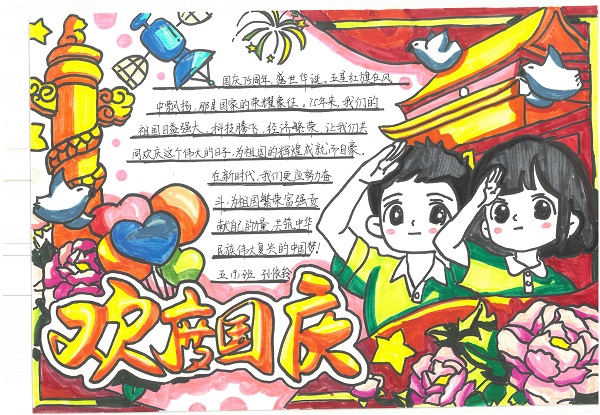 国庆75周年,盛世华诞。五星红旗在风
中飘扬,那是国家的荣耀象征。75年来,我们的
祖国日益强大,科技腾飞,经济繁荣,让我们共
同欢庆这个伟大的日子,为祖国的辉煌成就而自豪。
在新时代,我们更应努力奋
斗,为祖国繁荣富强贡
献自己的力量,共筑中华
民族伟大复兴的中国梦!
五(9)班 孙依
欢度国庆